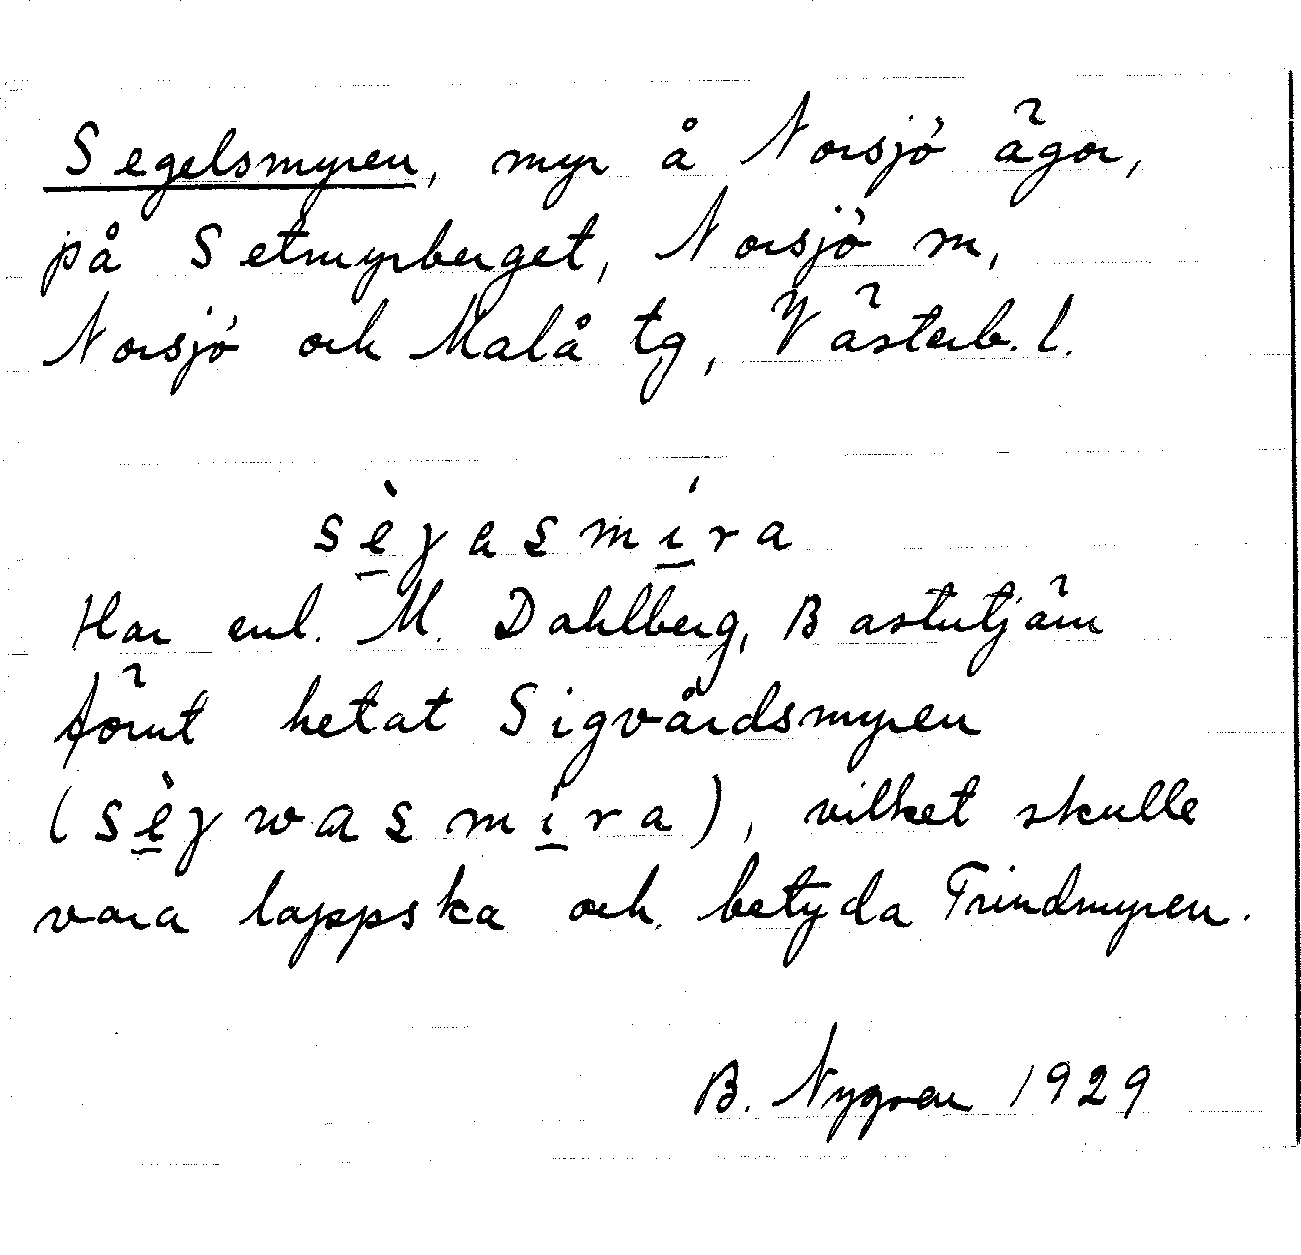 Segelsmyren, myr å Norsjö ägor,
på Setmyrberget, Norsjö m,
Norsjö och Malå tg, Västerb. l.
sè̱ɣasmí̱ra
Har enl. M. Dahlberg, Bastutjärn
förut hetat Sigvårdsmyren
(sè̱ɣwasmí̱ra), vilket skulle
vara lappska och betyda Trindmyren.
B. Nygren 1929